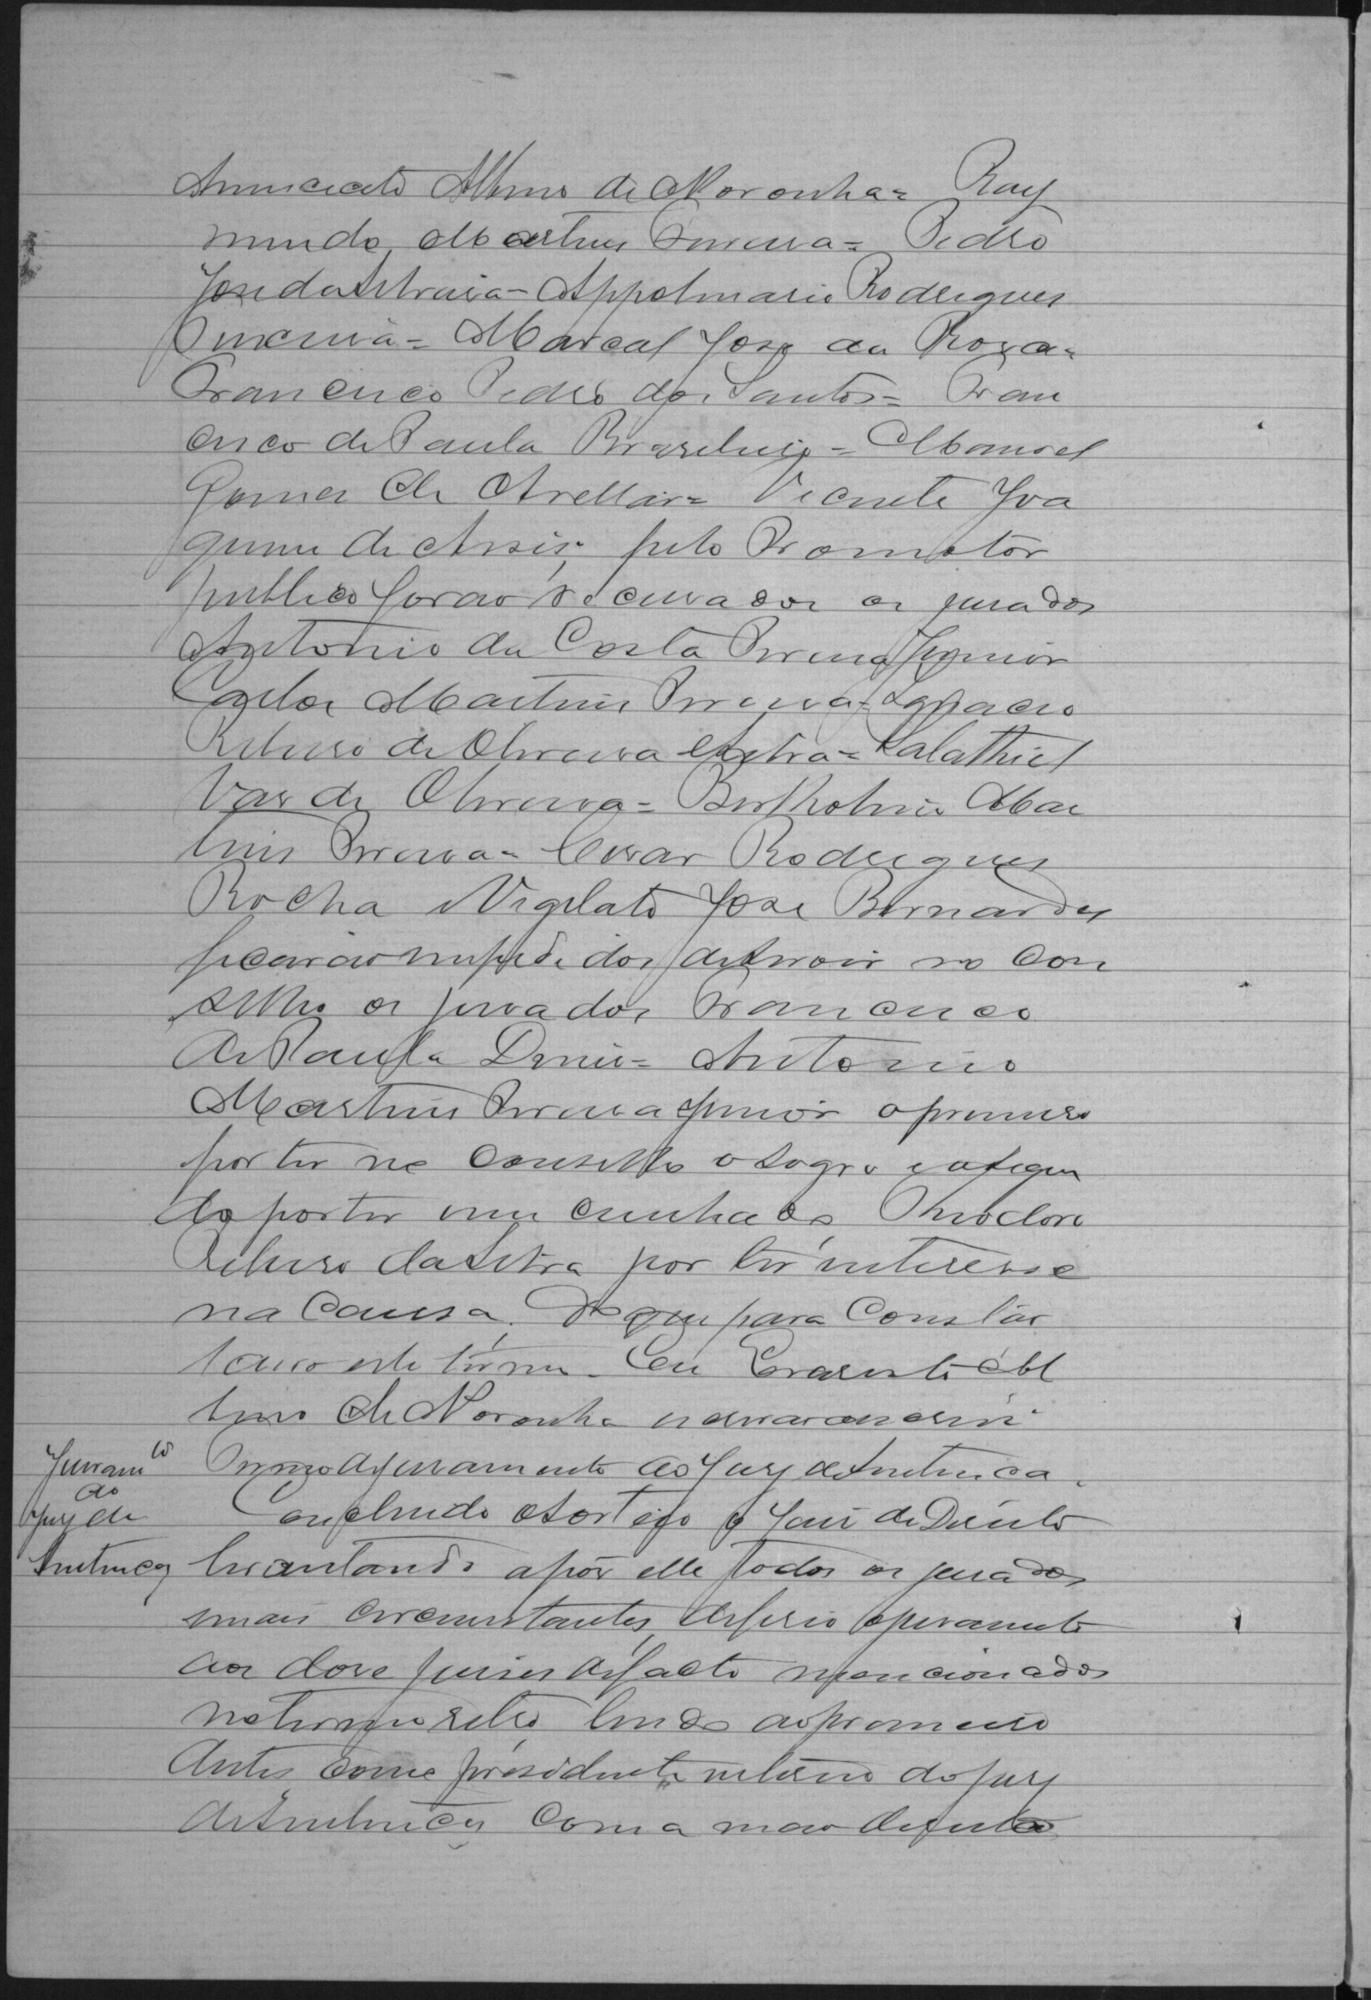 Annunciato Albino de Noronha= Ray
mundo Martins Ferreira= Pedro
José da Silveira- Appolinario Rodrigues
Pimenta= Marcal José da Roza=
Francisco Pedro dos Santos= Fran
cisco de Paula Brazileiro= Manoel
Gomes de Avellar= Vicente Joa
quim de Assis; pelo Promotor
publico forão recusados os jurados
Antonio da Costa Pereira Junior
Carlos Martins Ferreira= Ignacio
Ribeiro de Oliveira = Salathiel
Vaz de Oliveira= Bertholino Mar
tins Ferreira= Cezar Rodrigues
Rocha Vigilato José Bernardes
ficarão impedidos de servir no con
selho os jurados Francisco
de Paula Diniz= Antonio
Martins Ferreira Junior o primeiro
por ter no conselho o sogro e o segun
do por ter um cunhado, Theodoro
Ribeiro da Silva por ter interesse
na causa. Do que para constar
lavro este termo. Eu Evaristo Al
bino de Noronha escrivão o escrevi
Termo de juramento ao Jury de Sentença.
Juram.to
do
Jury de
Sentença
Concluido o sorteio o Juiz de Direito
levantando apóz elle todos os jurados
e mais circumstantes, deferio o juramento
aos doze juizes de facto mencionados
no termo retro, lendo ao primeiro
antes, como presidente interino do jury
de Sentença, com a mão direita